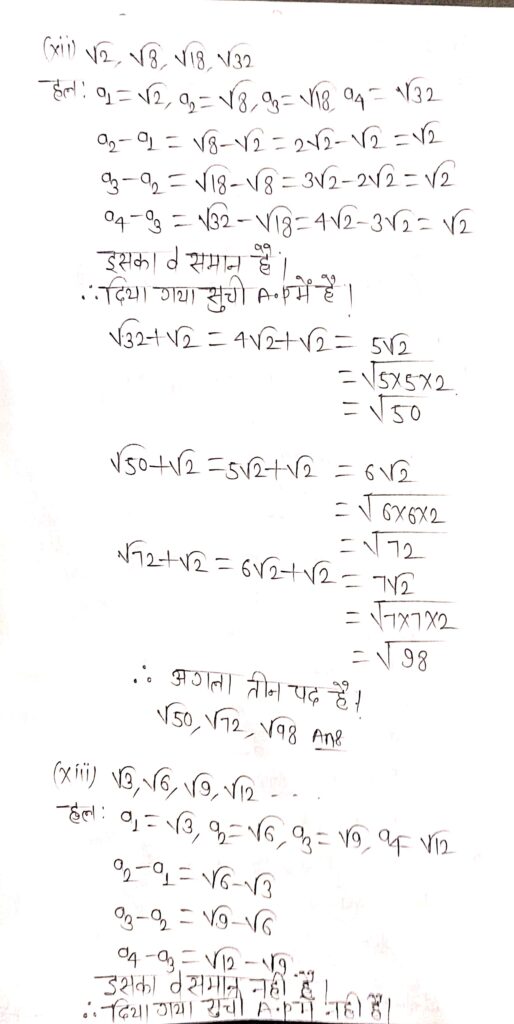 (xii) √2, √8, √18, √32
हल: a1 = √2, a2 = √8, a3 = √18, a4 = √32
a2 - a1 = √8 - √2 = 2√2 - √2 = √2
a3 - a2 = √18 - √8 = 3√2 - 2√2 = √2
a4 - a3 = √32 - √18 = 4√2 - 3√2 = √2
इसका d समान है।
∴ दिया गया सुची A.P में है।
√32 + √2 = 4√2 + √2 = 5√2
= √5×5×2
= √50
√50 + √2 = 5√2 + √2 = 6√2
= √6×6×2
= √72
√72 + √2 = 6√2 + √2 = 7√2
= √7×7×2
= √98
∴ अगला तीन पद है।
√50, √72, √98 Ans
(xiii) √3, √6, √9, √12 ....
हल: a1 = √3, a2 = √6, a3 = √9, a4 = √12
a2 - a1 = √6 - √3
a3 - a2 = √9 - √6
a4 - a3 = √12 - √9
इसका d समान नही है।
∴ दिया गया सुची A.P में नही है।